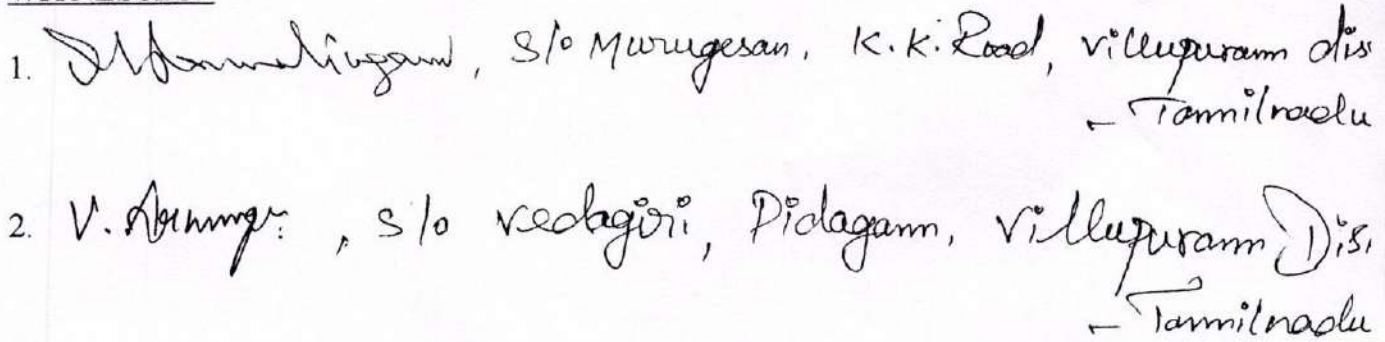 1. , S/o Murugesan, K.K. Road, villupuram dis
- Tamilnadu
2. V. , S/o vedagiri, Pidagam, Villupuram Dis.
- Tamilnadu